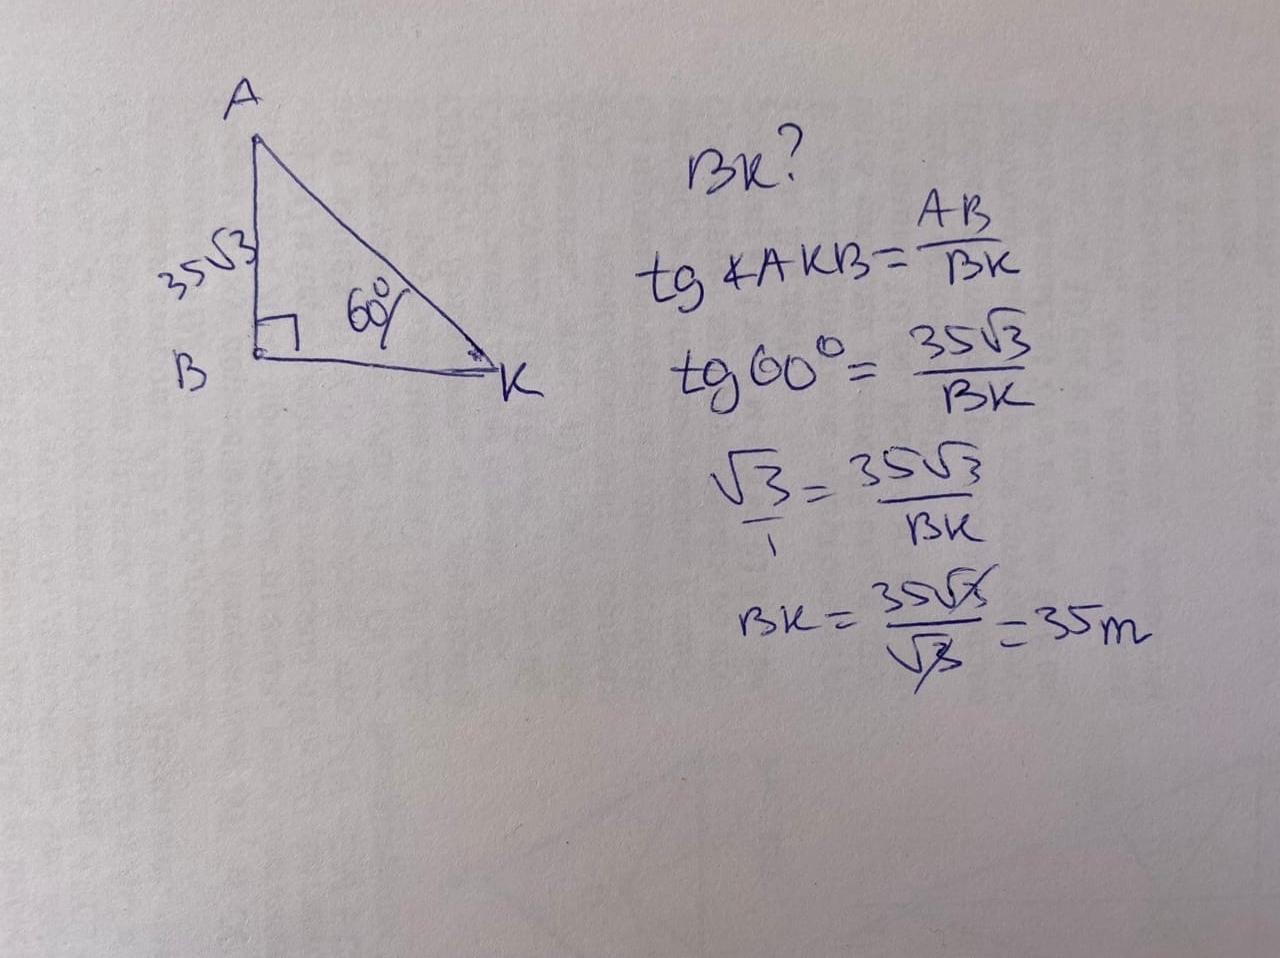 A
35√3
60°
B
K
BK?
tg ∢AKB = AB/BK
tg 60° = 35√3/BK
√3/1 = 35√3/BK
BK = 35√3/√3 = 35m